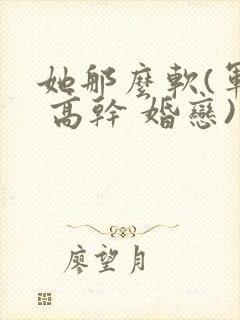 她那麼軟(軍
高幹 婚戀)
廖望月